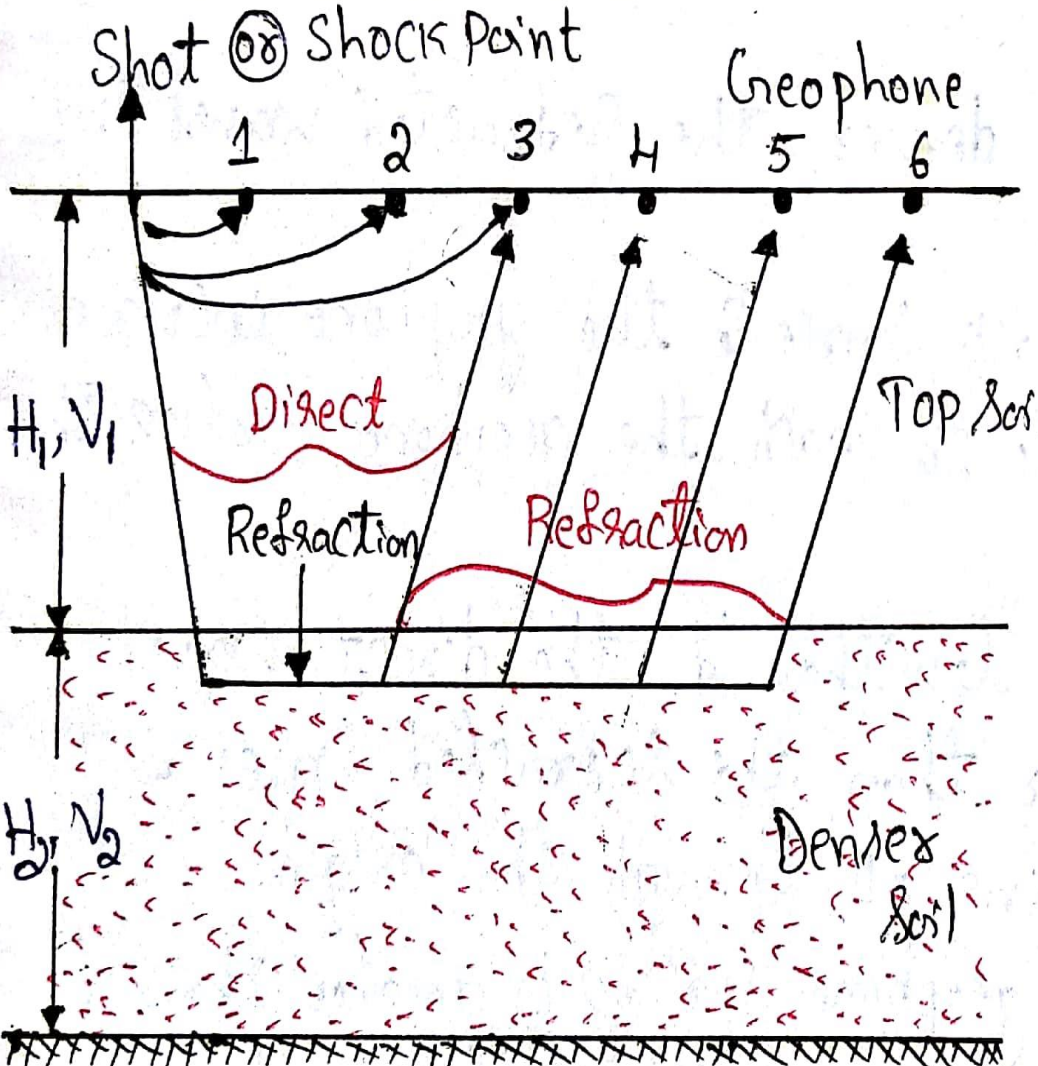 Shot or Shock Point
Geophone
1 2 3 4 5 6
H1, V1
Direct
Top Soi
Refraction
Refraction
H2, V2
Denser
Soil